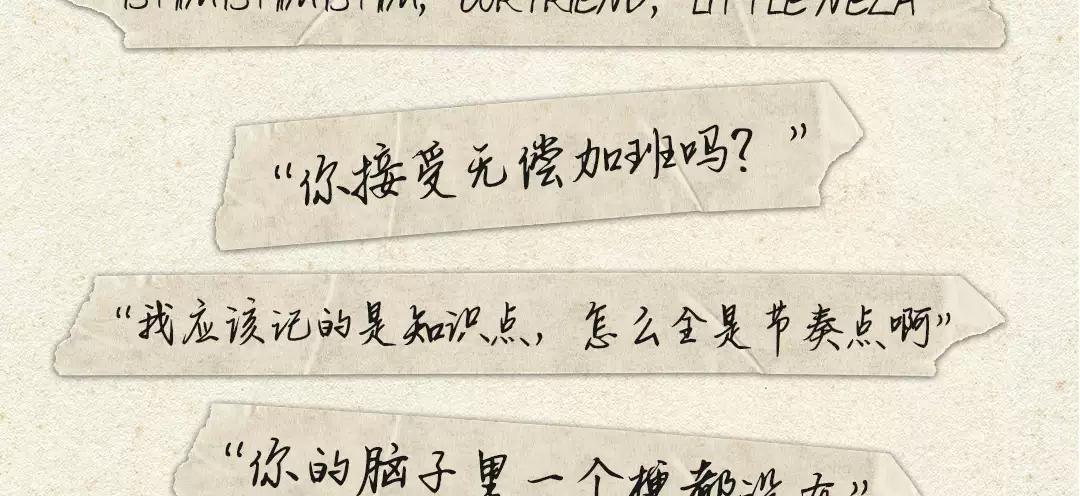 ISHIMISHIMISHIM, OUR FRIEND, LITTLE NEZA
“你接受无偿加班吗？”
“我应该记的是知识点，怎么全是节奏点啊”
“你的脑子里一个梗都没有”